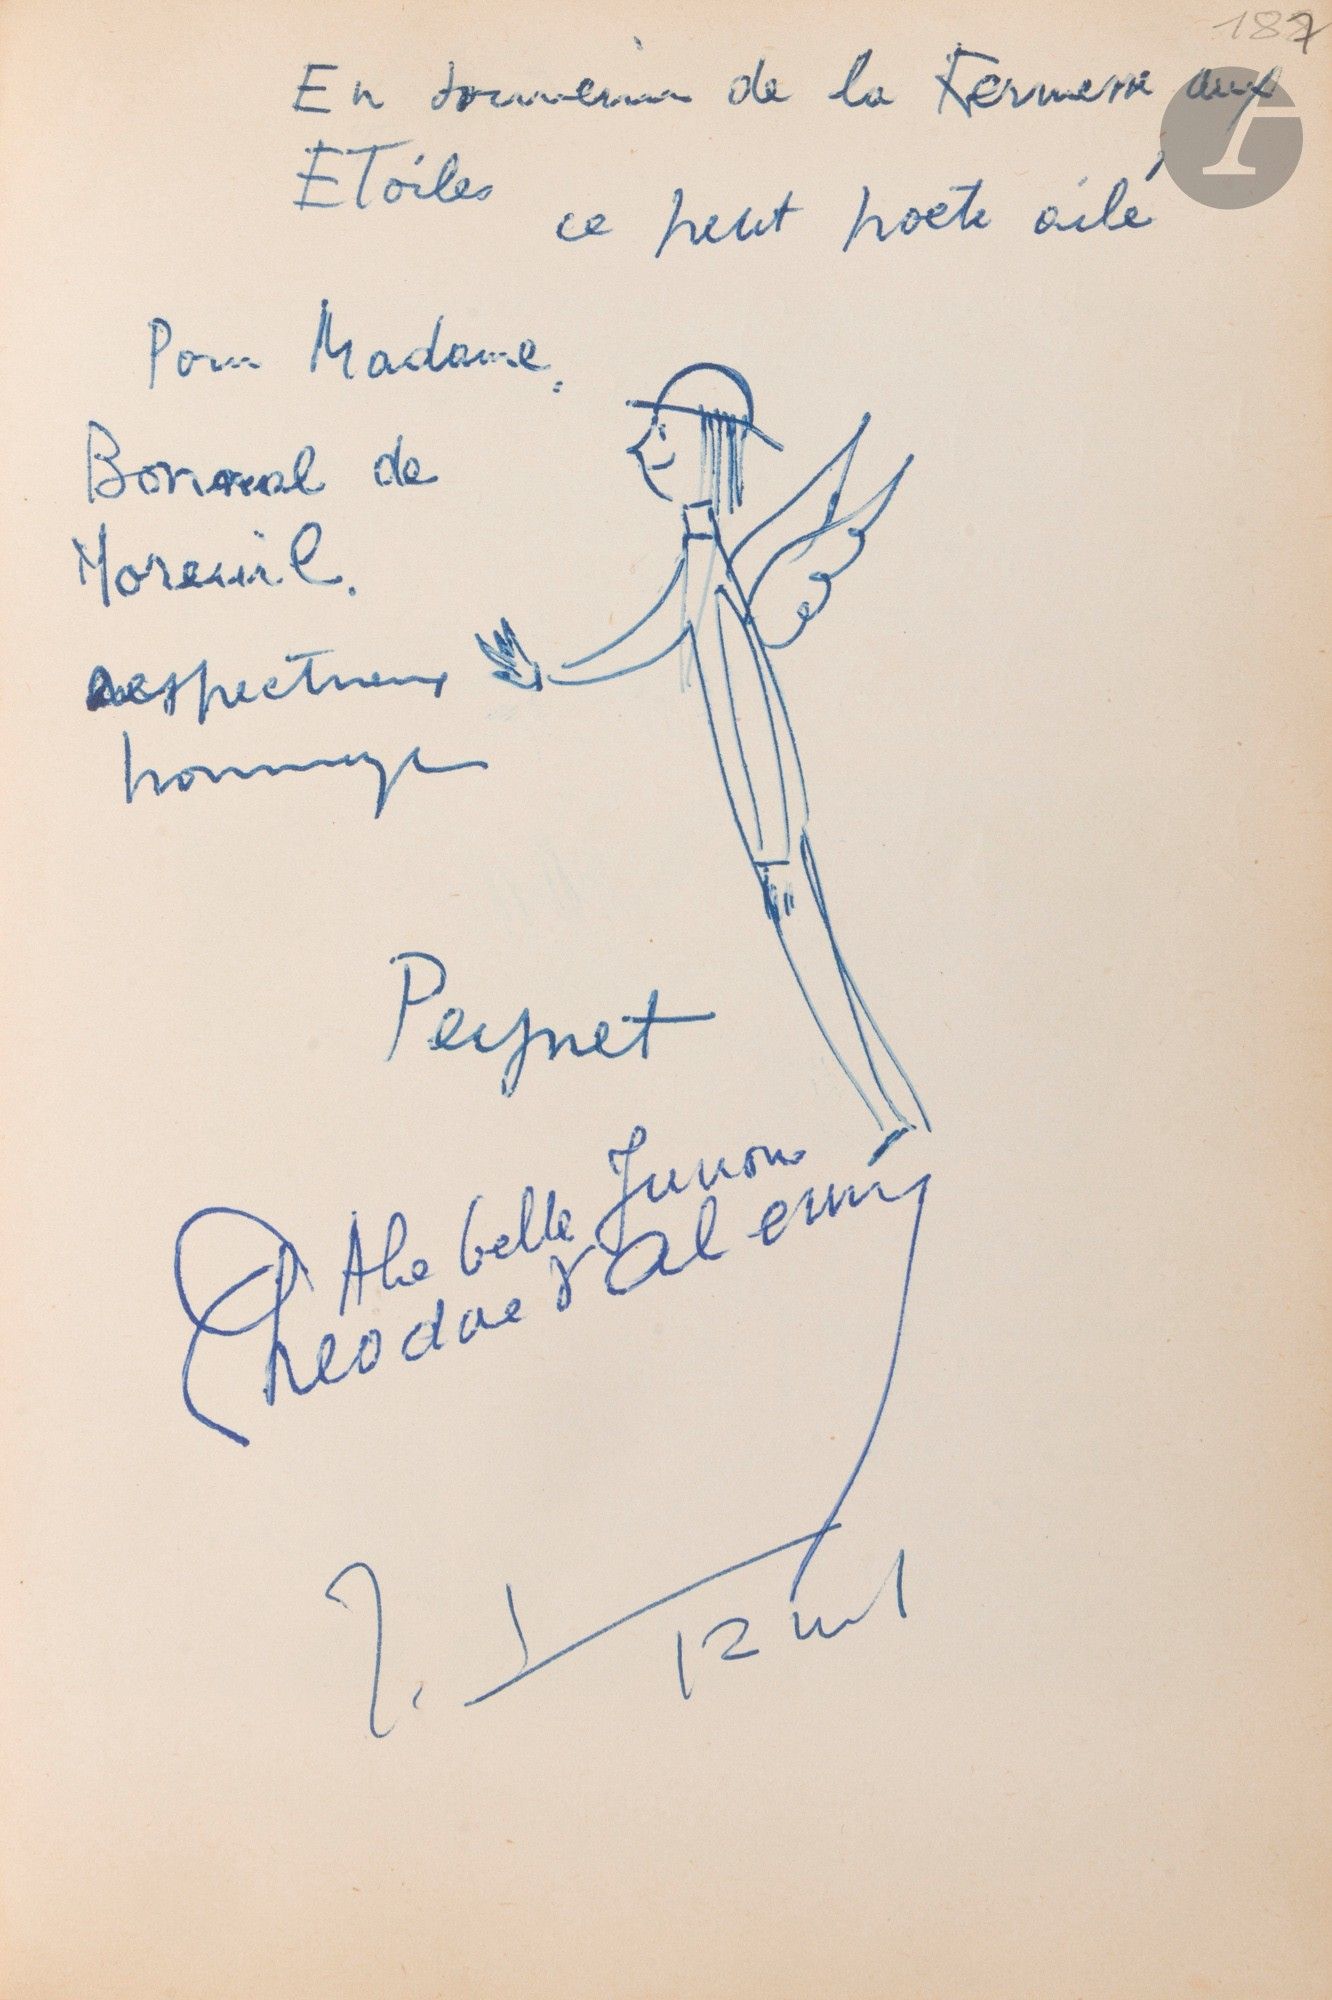 187
En souvenir de la Kermesse aux
Etoiles
ce petit poète ailé
Pour Madame.
Bonneval de
Moreuil.
respectueux
hommage
Peynet
A la belle Junon
Theodore Valensi
12 mil